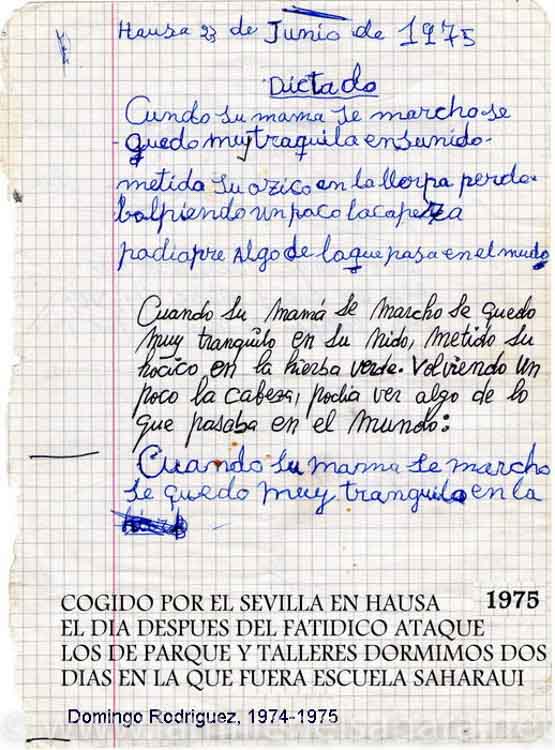 Hausa 23 de Junio de 1975
Dictado
Cundo su mama se marcho se
quedo muy traquila en su nido
metida su ozico en la llerpa perda
bolpiendo un paco la capeza
padia pre Algo de la que pasa en el mudo
Cuando su mamá se marcho se quedo
muy tranquilo en su nido, metido su
hocico en la hierba verde. Volviendo un
poco la cabeza, podia ver algo de lo
que pasaba en el mundo:
Cuando su mama se marcho
se quedo muy tranquilo en la
COGIDO POR EL SEVILLA EN HAUSA 1975
EL DIA DESPUES DEL FATIDICO ATAQUE
LOS DE PARQUE Y TALLERES DORMIMOS DOS
DIAS EN LA QUE FUERA ESCUELA SAHARAUI
Domingo Rodriguez, 1974-1975